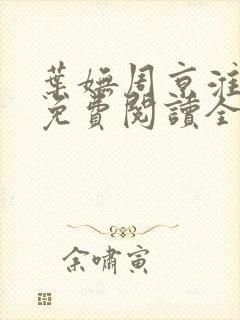 葉嫵周京淮
免費閱讀全
余嘯寅